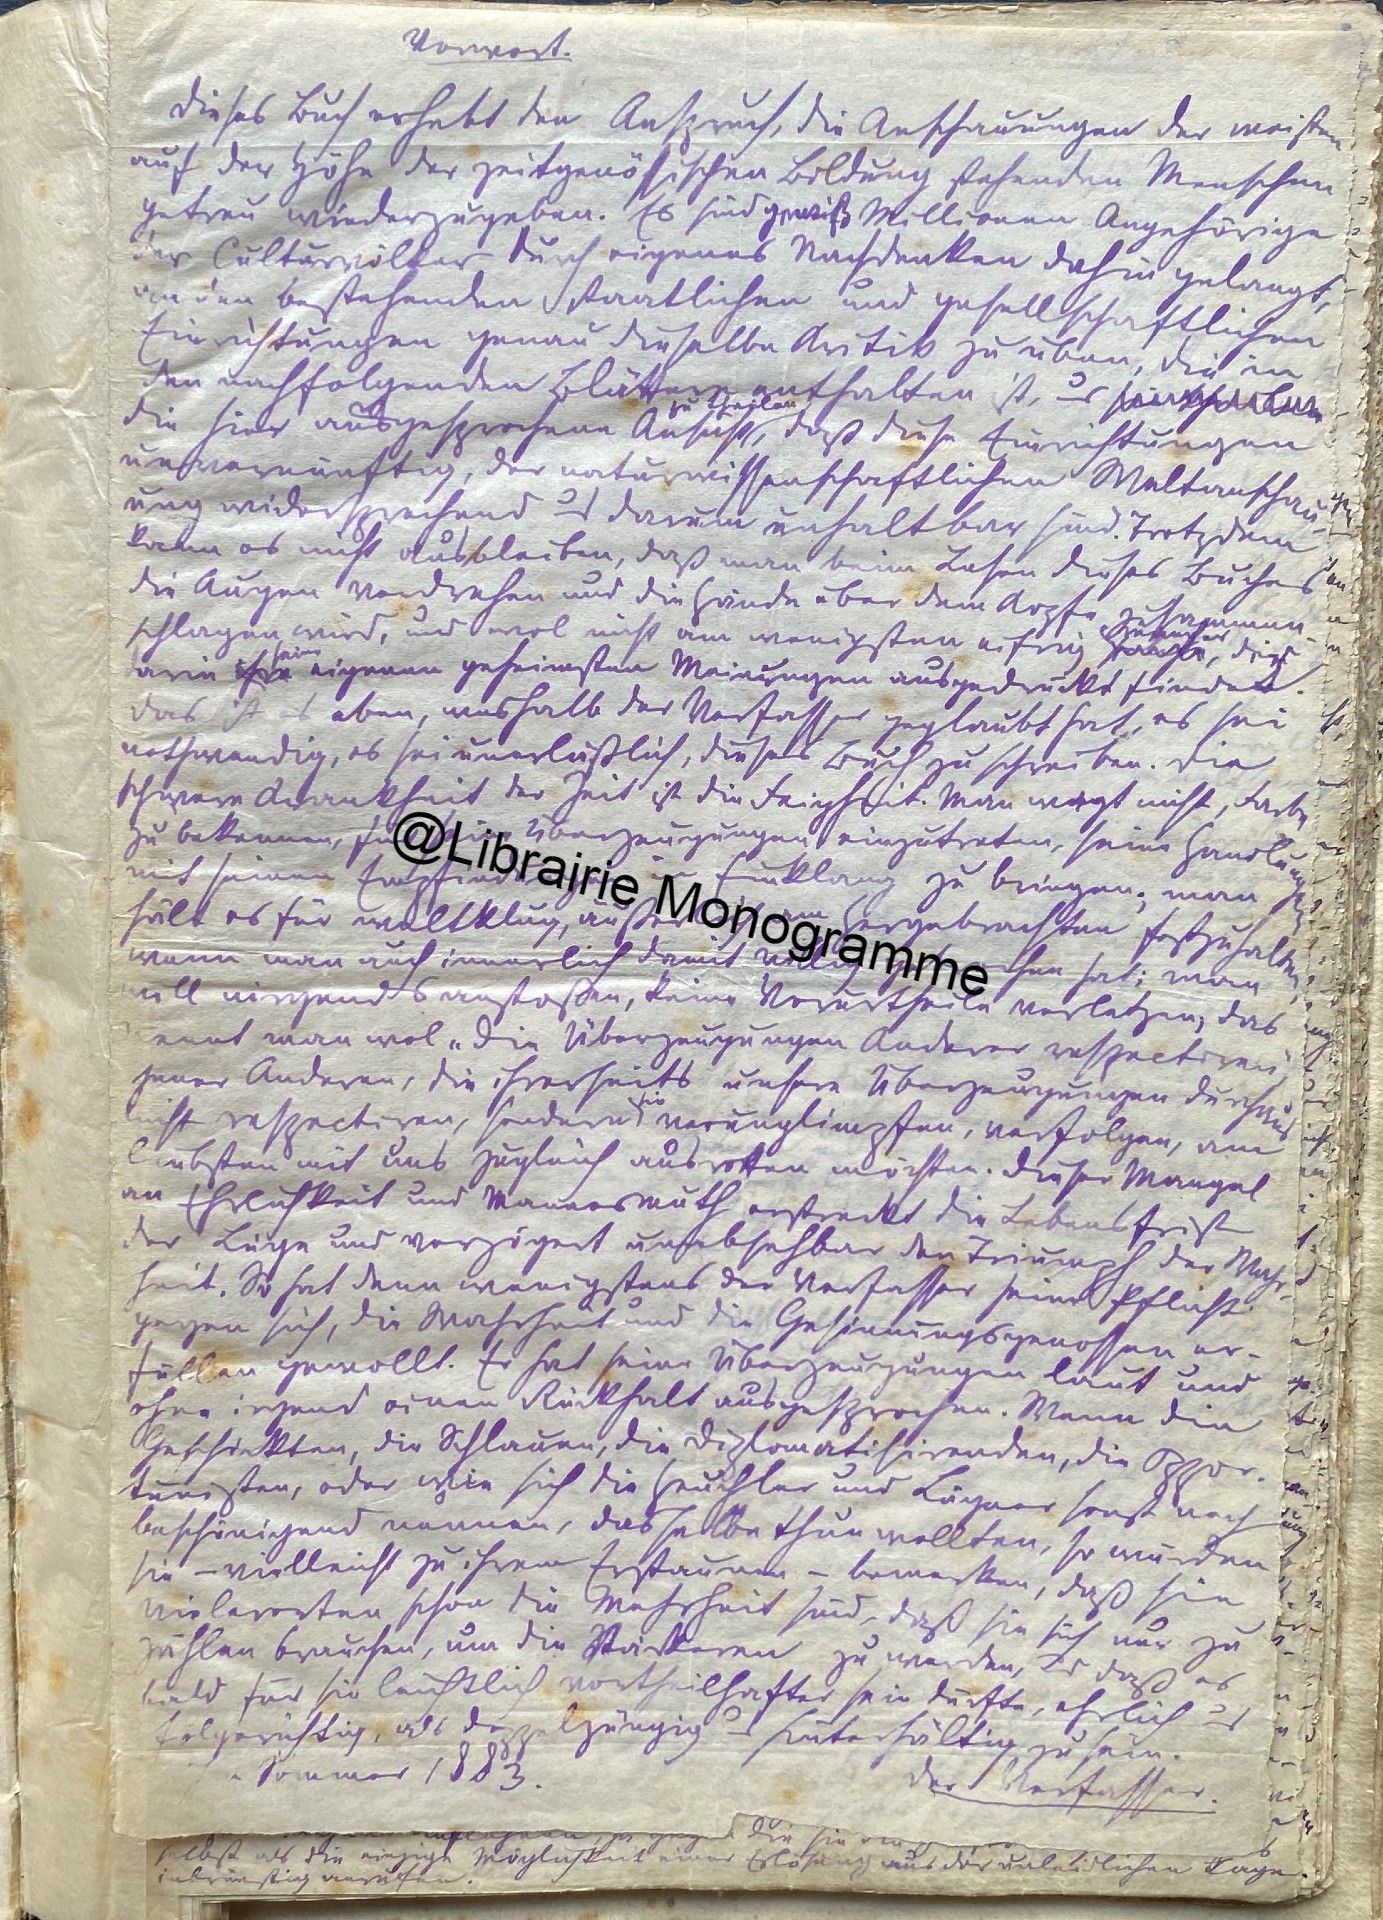 Vorwort.
Dieses Buch erhebt den Anspruch, die Anschauungen der meisten
auf der Höhe der zeitgenössischen Bildung stehenden Menschen
getreu wiederzugeben. Es sind gewiß Millionen Angehörige
der Culturvölker durch eigenes Nachdenken dahin gelangt,
an den bestehenden staatlichen und gesellschaftlichen
Einrichtungen genau dieselbe Kritik zu üben, die in
den nachfolgenden Blättern enthalten ist, u
die hier ausgesprochene Ansicht zu theilen, daß diese Einrichtungen
unvernünftig, der naturwissenschaftlichen Weltanschau-
ung widersprechend u darum unhaltbar sind. Trotzdem
kann es nicht ausbleiben, daß man beim Lesen dieses Buches
die Augen verdrehen und die Hände über dem Kopfe zusammen-
schlagen wird, und wol nicht am wenigsten eifrig Mancher, der
darin seine eigenen geheimsten Meinungen ausgedrückt findet.
Das ist es eben, weshalb der Verfasser geglaubt hat, es sei
nothwendig, es sei unerläßlich, dieses Buch zu schreiben. Die
schwere Krankheit der Zeit ist die Feigheit. Man wagt nicht, Farbe
zu bekennen, für seine Überzeugungen einzutreten, seine Handlungen
mit seinen Empfindungen in Einklang zu bringen; man
hält es für weltklug, äußerlich am Hergebrachten festzuhalten,
wenn man auch innerlich damit völlig gebrochen hat; man
will nirgends anstoßen, keine Vorurtheile verletzen; das
nennt man wol „die Überzeugungen Anderer respectiren“,
jener Anderen, die ihrerseits unsere Überzeugungen durchaus
nicht respectiren, sondern sie verunglimpfen, verfolgen, am
liebsten mit uns zugleich ausrotten möchten. Dieser Mangel
an Ehrlichkeit und Mannesmuth erstreckt die Lebensfrist
der Lüge und verzögert unabsehbar den Triumph der Wahr-
heit. So hat denn wenigstens der Verfasser seine Pflicht
gegen sich, die Wahrheit und die Gesinnungsgenossen er-
füllen gewollt. Er hat seine Überzeugungen laut und
ohne irgend einen Rückhalt ausgesprochen. Wenn die
Geschickten, die Schlauen, die Diplomatisirenden, die Oppor-
tunisten, oder wie sich die Heuchler und Lügner sonst noch
beschönigend nennen, dasselbe thun wollten, so würden
sie – vielleicht zu ihrem Erstaunen – bemerken, daß sie
vielerorten schon die Mehrheit sind, daß sie sich nur zu
zählen brauchen, um die Stärkeren zu werden, u daß es
bald für sie leichtlich vortheilhafter sein dürfte, ehrlich u
folgerichtig, als doppelzüngig u hinterhältig zu sein.
Sommer 1883.
Der Verfasser.
selbst als die einzige Möglichkeit einer Erlösung aus der unleidlichen Lage
inbrünstig anrufen.
@Librairie Monogramme